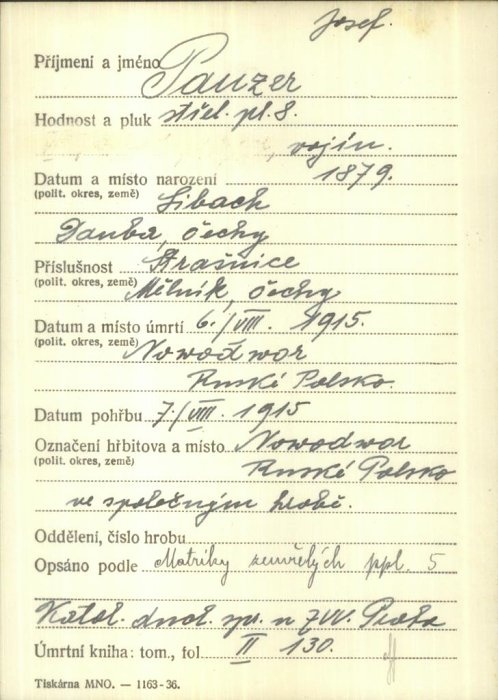 Josef.
Příjmení a jméno Panzer
Hodnost a pluk střel. pl. 8.
vojín.
Datum a místo narození 1879.
(polit. okres, země) Libach
Dauba, Čechy
Příslušnost Strašnice
(polit. okres, země) Mělník, Čechy
Datum a místo úmrtí 6./VIII. 1915.
(polit. okres, země) Nowodwor
Ruské Polsko
Datum pohřbu 7./VIII. 1915
Označení hřbitova a místo Nowodwor
(polit. okres, země) Ruské Polsko
ve společným hrobě.
Oddělení, číslo hrobu
Opsáno podle Matriky zemřelých ppl. 5
Katol. duch. spr. u ZVV. Praha
Úmrtní kniha: tom., fol. II 130.
Tiskárna MNO. — 1163-36.